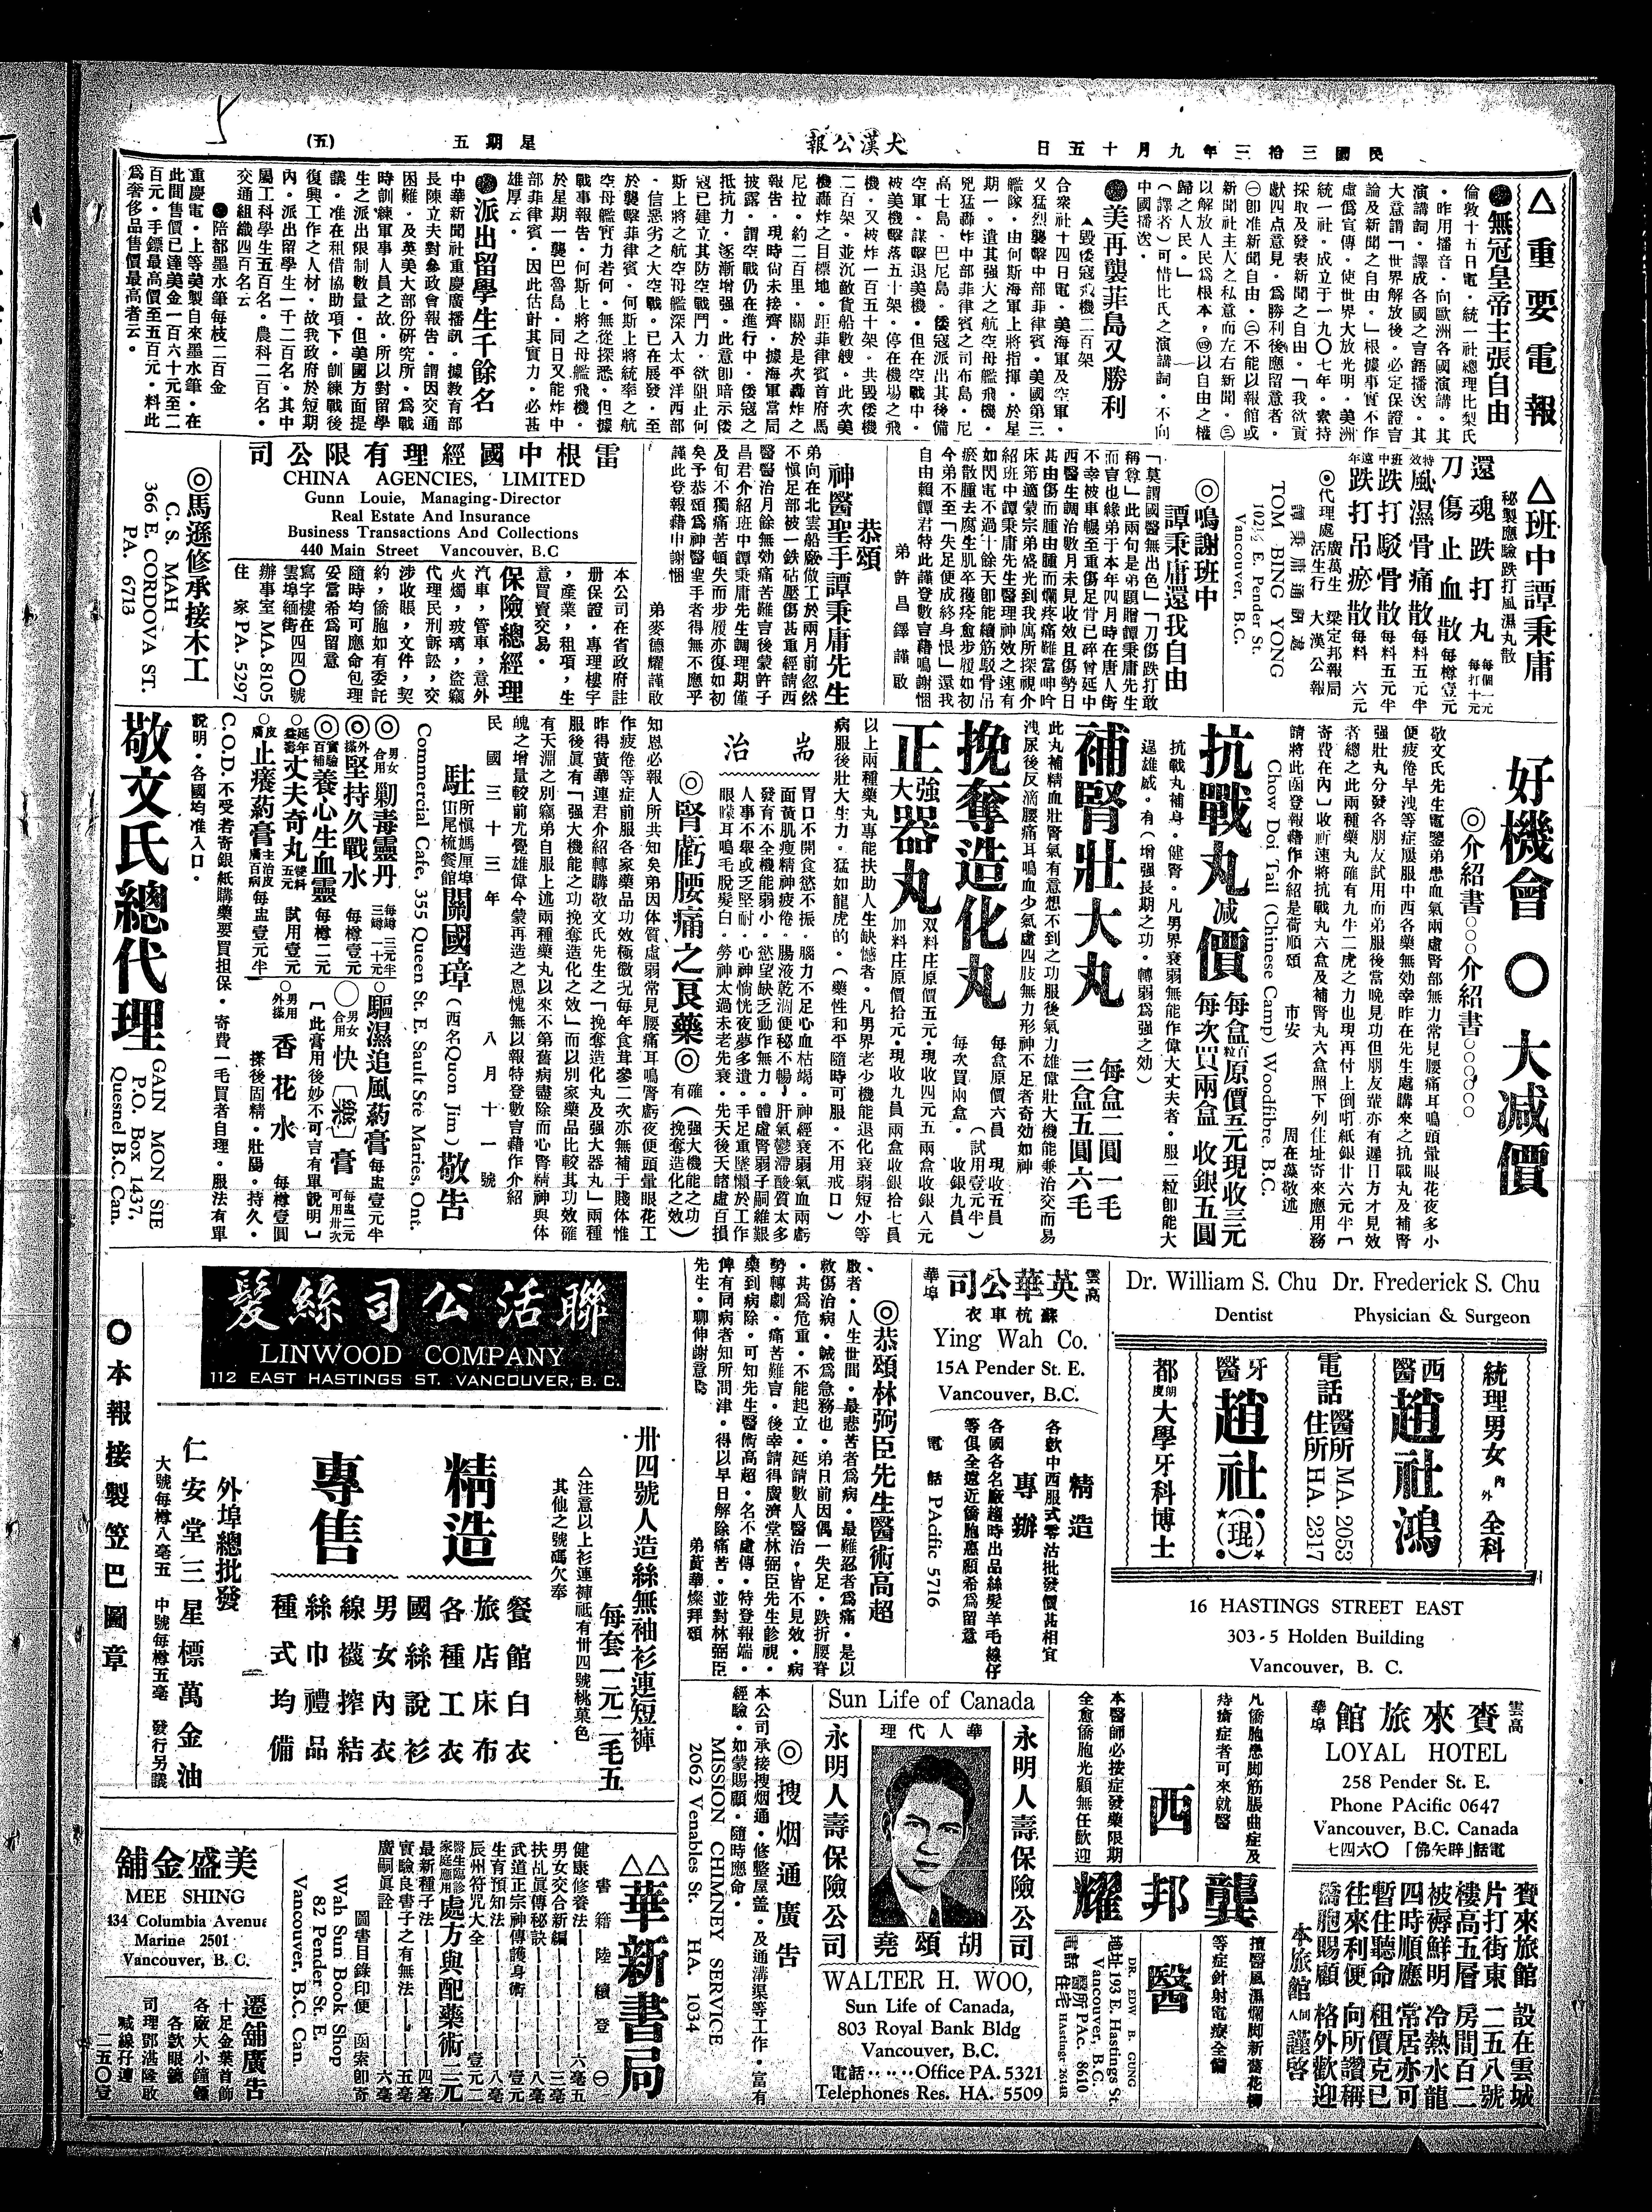 民國三拾三年九月十五日
大漢公報
星期五
(五)
△重要電報
●無冠皇帝主張自由
倫敦十五日電・統一社總理比梨氏
・昨用播音・向歐洲各國演講・其
演講詞・譯成各國之言語播送・其
大意謂「世界解放後・必定保證言
論及新聞之自由・」根據事實不作
虛僞宣傳・使世界大放光明・美洲
統一社・成立于一九〇七年・素持
採取及發表新聞之自由・「我欲貢
獻四点意見・爲勝利後應留意者・
㊀卽准新聞自由・㊁不能以報館或
新聞社主人之私意而左右新聞・㊂
以解放人民爲根本・㊃以自由之權
歸之人民・」
(譯者)可惜比氏之演講詞・不向
中國播送・
●美再襲菲島又勝利
▲毁倭寇飛機二百架
合衆社十四日電・美海軍及空軍・
又猛烈襲擊中部菲律賓・美國第三
艦隊・由何斯海軍上將指揮・於星
期一・遣其強大之航空母艦飛機・
兇猛轟炸中部菲律賓之司布島・尼
高士島・巴尼島・倭寇派出其後備
空軍・謀擊退美機・但在空戰中・
被美機擊落五十架・停在機場之飛
機・又被炸一百五十架・共毁倭機
二百架・並沉敵貨船數艘・此次美
機轟炸之目標地・距菲律賓首府馬
尼拉・約二百里・關於是次轟炸之
報告・現時尙未接齊・據海軍當局
披露・謂空戰仍在進行中・倭寇之
抵抗力・逐漸增强・此意卽暗示倭
寇已建立其防空戰鬥力・欲阻止何
斯上將之航空母艦深入太平洋西部
・信惡劣之大空戰・已在展發・至
於襲擊菲律賓・何斯上將統率之航
空母艦實力若何・無從探悉・但據
戰事報告・何斯上將之母艦飛機・
於星期一襲巴魯島・同日又能炸中
部菲律賓・因此估計其實力・必甚
雄厚云・
●派出留學生千餘名
中華新聞社重慶廣播訊・據教育部
長陳立夫對參政會報告・謂因交通
困難・及英美大部份研究所・爲戰
時訓練軍事人員之故・所以對留學
生之派出限制數量・但美國方面提
議・准在租借協助項下・訓練戰後
復興工作之人材・故我政府於短期
內・派出留學生一千二百名・其中
屬工科學生五百名・農科二百名・
交通組織四百名云
●陪都墨水筆每枝二百金
重慶電・上等美製自來墨水筆・在
此間售價已達美金一百六十元至二
百元・手鏢最高價至五百元・料此
爲奢侈品售價最高者云・
△班中譚秉庸
秘製應驗跌打風濕丸散
還魂跌打丸 每個一元 每打十元
刀傷止血散 每樽壹元
特效風濕骨痛散 每料五元半
班中跌打駁骨散 每料五元半
遠年跌打吊瘀散 每料 六元
◎代理處 廣萬生 梁定邦報局
活生行 大漢公報
譚秉庸通訊處
TOM BING YONG
102½ E. Pender St.
Vancouver, B.C.
◎鳴謝班中
譚秉庸還我自由
「莫謂國醫無出色」「刀傷跌打敢
稱尊」此兩句是弟題贈譚秉庸先生
而言也緣弟于本年四月時在唐人街
不幸被車輾至重傷足骨已碎曾延中
西醫生調治數月未見收效且傷勢日
甚由傷而腫由腫而爛疼痛難當呻吟
床第適蒙宗弟盛光到我寓所探視介
紹班中譚秉庸先生醫理神效之速有
如閃電不過十餘天卽能續筋駁骨吊
瘀散腫去腐生肌卒獲痊愈步履如初
今弟不至「失足便成終身恨」還我
自由賴譚君特此謹登數言藉鳴謝悃
弟許昌鐸謹啟
恭頌
神醫聖手譚秉庸先生
弟向在北雲船廠做工於兩月前忽然
不愼足部被一鉄砧壓傷甚重經請西
醫醫治月餘無効痛苦難言後蒙許子
昌君介紹班中譚秉庸先生調理期僅
及旬不獨痛苦頓失而步履亦復如初
矣予恭頌爲神醫聖手者得無不應乎
謹此登報藉申謝悃
弟麥德耀謹啟
雷根中國經理有限公司
CHINA AGENCIES, LIMITED
Gunn Louie, Managing-Director
Real Estate And Insurance
Business Transactions And Collections
440 Main Street Vancouver, B.C
本公司在省政府註
册保證・專理樓宇
,產業,租項,生
意買賣交易・
保險總經理
汽車,管車,意外
火燭,玻璃,盜竊
代理民刑訴訟,交
涉收賬,文件,契
約,僑胞如有委託
隨時均可應命包理
妥當希爲留意
寫字樓在
雲埠緬街四四〇號
辦事室 MA. 8105
住 家 PA. 5297
◎馬遜修承接木工
C. S. MAH
366 E. CORDOVA ST.
PA. 6713
好機會〇大减價
◎介紹書○○○介紹書○○○○○
敬文氏先生電鑒弟患血氣兩虛腎部無力常見腰痛耳鳴頭暈眼花夜多小
便疲倦早洩等症屢服中西各藥無効幸昨在先生處購來之抗戰丸及補腎
强壯丸分發各朋友試用而弟服後當晚見功但朋友輩亦有遲日方才見效
者總之此兩種藥丸確有九牛二虎之力也現再付上倒吖紙銀廿六元半〔
寄費在內〕收祈速將抗戰丸六盒及補腎丸六盒照下列住址寄來應用務
請將此函登報藉作介紹是荷順頌 市安 周在藻敬述
Chow Doi Tail (Chinese Camp) Woodfibre, B.C.
抗戰丸减價 每盒百粒原價五元現收三元
每次買兩盒 收銀五圓
抗戰丸補身・健腎・凡男界衰弱無能作偉大丈夫者・服二粒卽能大
逞雄威・有(增强長期之功・轉弱爲强之効)
補腎壯大丸 每盒二圓一毛
三盒五圓六毛
此丸補精血壯腎氣有意想不到之功服後氣力雄偉壯大機能兼治交而易
洩尿後反滴腰痛耳鳴血少氣虛四肢無力形神不足者奇効如神
挽奪造化丸 每盒原價六員 現收五員
(試用壹元半)
每次買兩盒・ 收銀九員
正强大器丸 双料庄原價五元・現收四元五兩盒收銀八元
加料庄原價拾元・現收九員兩盒收銀拾七員
以上兩種藥丸專能扶助人生缺憾者・凡男界老少機能退化衰弱短小等
病服後壯大生力・猛如龍虎的・(藥性和平隨時可服・不用戒口)
耑治
胃口不開食慾不振・腦力不足心血枯竭・神經衰弱氣血兩虧
面黃肌瘦精神疲倦・腸液乾涸便秘不暢・肝氣鬱滯酸質太多
發育不全機能弱小・慾望缺乏動作無力・體虛腎弱子嗣維艱
人事不舉或乏堅耐・心神惝恍夜夢多遺・手足重墜懶於工作
眼矇耳鳴毛脫髮白・勞神太過未老先衰・先天後天諸虛百損
◎腎虧腰痛之良藥◎ 確有 (强大機能之功)
(挽奪造化之效)
知恩必報人所共知矣弟因体質虛弱常見腰痛耳鳴腎虧夜便頭暈眼花工
作疲倦等症前服各家藥品功效極微況每年食茸參二次亦無補于賤体惟
昨得黃華連君介紹轉購敬文氏先生之「挽奪造化丸及强大器丸」兩種
服後眞有「强大機能之功挽奪造化之效」而以別家藥品比較其功效確
有天淵之別竊弟自服上述兩種藥丸以來不第舊病盡除而心腎精神與体
魄之增量較前尤覺雄偉今蒙再造之恩愧無以報特登數言藉作介紹
民國三十三年 八月十一號
駐所愼媽厘埠冚尾梳餐館關國璋(西名Quon Jim)敬告
Commercial Cafe, 355 Queen St. E. Sault Ste Maries, Ont.
◎男女合用剿毒靈丹 每樽三元半 三樽一十元
◎外搽堅持久戰水 每樽壹元
◎實驗百補養心生血靈 每樽二元
○延年益壽丈夫奇丸 雙料五元 試用壹元
○皮膚止癢葯膏 主治皮膚百病 每盅壹元半
○驅濕追風葯膏 每盅壹元半
○男女合用快〔樂〕膏 每盅二元 可用卅次
〔此膏用後妙不可言有單說明〕
○男用外搽香花水 每樽壹圓
搽後固精・壯陽・持久・
C.O.D. 不受若寄銀紙購藥要買担保・寄費一毛買者自理・服法有單
說明・各國均准入口・
敬文氏總代理
GAIN MON SIE
P.O. Box 1437,
Quesnel B.C. Can.
Dr. William S. Chu Dr. Frederick S. Chu
Dentist Physician & Surgeon
統理男女內外全科
西醫趙社鴻
電話 醫所 MA. 2053
住所 HA. 2317
牙醫趙社(琨)
都朗度大學牙科博士
16 HASTINGS STREET EAST
303-5 Holden Building
Vancouver, B. C.
雲高華埠 英華公司
蘇杭車衣
Ying Wah Co.
15A Pender St. E.
Vancouver, B.C.
精造
各欵中西服式零沽批發價甚相宜
專辦
各國各名廠趨時出品絲髮羊毛線仔
等俱全遠近僑胞惠顧希爲留意
電話 PAcific 5716
◎恭頌林弼臣先生醫術高超
啟者・人生世間・最悲苦者爲病・最難忍者爲痛・是以
救傷治病・誠爲急務也・弟日前因偶一失足・跌折腰脊
・甚爲危重・不能起立・延請數人醫治,皆不見效・病
勢轉劇・痛苦難言・後幸請得廣濟堂林弼臣先生診視・
藥到病除・可知先生醫術高超・名不虛傳・特登報端・
俾有同病者知所問津・得以早日解除痛苦・並對林弼臣
先生・聊伸謝意焉
弟黃華燦拜頌
聯活公司絲髮
LINWOOD COMPANY
112 EAST HASTINGS ST. VANCOUVER, B. C.
卅四號人造絲無袖衫連短褲
每套一元二毛五
△注意以上衫連褲祗有卅四號桃菓色
其他之號碼欠奉
精造
餐館白衣
旅店床布
各種工衣
國絲說衫
專售
男女內衣
線襪搾結
絲巾禮品
種式均備
外埠總批發
仁安堂三星標萬金油
大號每樽八毫五 中號每樽五毫 發行另議
〇本報接製笠巴圖章
雲高華埠 賚來旅館
LOYAL HOTEL
258 Pender St. E.
Phone PAcific 0647
Vancouver, B.C. Canada
電話「辟矢佛」〇六四七
賚來旅館 設在雲城
片打街東 二五八號
樓高五層 房間百二
被褥鮮明 冷熱水龍
四時順應 常居亦可
暫住聽命 租價克已
往來利便 向所讚稱
僑胞賜顧 格外歡迎
本旅館同人謹啓
凡僑胞患脚筋脹曲症及
痔瘡症者可來就醫
西醫
本醫師必按症發藥限期
全愈僑胞光顧無任歡迎
龔邦耀
擅醫風濕爛脚新舊花柳
等症針射電療全備
DR. EDW B. GUNG
地址193 E. Hastings St.
Vancouver, B.C.
電話 醫所 PAc. 8610
住宅 Hastings 2614R
Sun Life of Canada
華人代理
永明人壽保險公司
永明人壽保險公司
胡頌堯
WALTER H. WOO,
Sun Life of Canada,
803 Royal Bank Bldg
Vancouver, B.C.
電話‥‥‥Office PA. 5321
Telephones Res. HA. 5509
◎搜烟通廣告
本公司承接搜烟通・修整屋盖・及通溝渠等工作・富有
經驗・如蒙賜顧・隨時應命・
MISSION CHIMNEY SERVICE
2062 Venables St. HA. 1034
△△華新書局
書籍陸續登 ㊀
健康修養法 六毫五
男女交合新編 三毫
扶乩眞傳秘訣 八毫
武道正宗神傳護身術 壹元
生育預知法 八毫
辰州符咒大全 壹元二
醫生臨診家庭應用處方與配藥術 三元
最新種子法 四毫
實驗良書子之有無法 五毫
廣嗣眞詮 六毫
圖書目錄印便 函索卽寄
Wah Sun Book Shop
82 Pender St. E.
Vancouver, B.C. Can.
美盛金舖
MEE SHING
434 Columbia Avenue
Marine 2501
Vancouver, B. C.
遷舖廣告
十足金葉首飾
各廠大小鐘鏢
各欵眼鏡
司理鄧湛隆啟
喊線孖連
二五〇壹